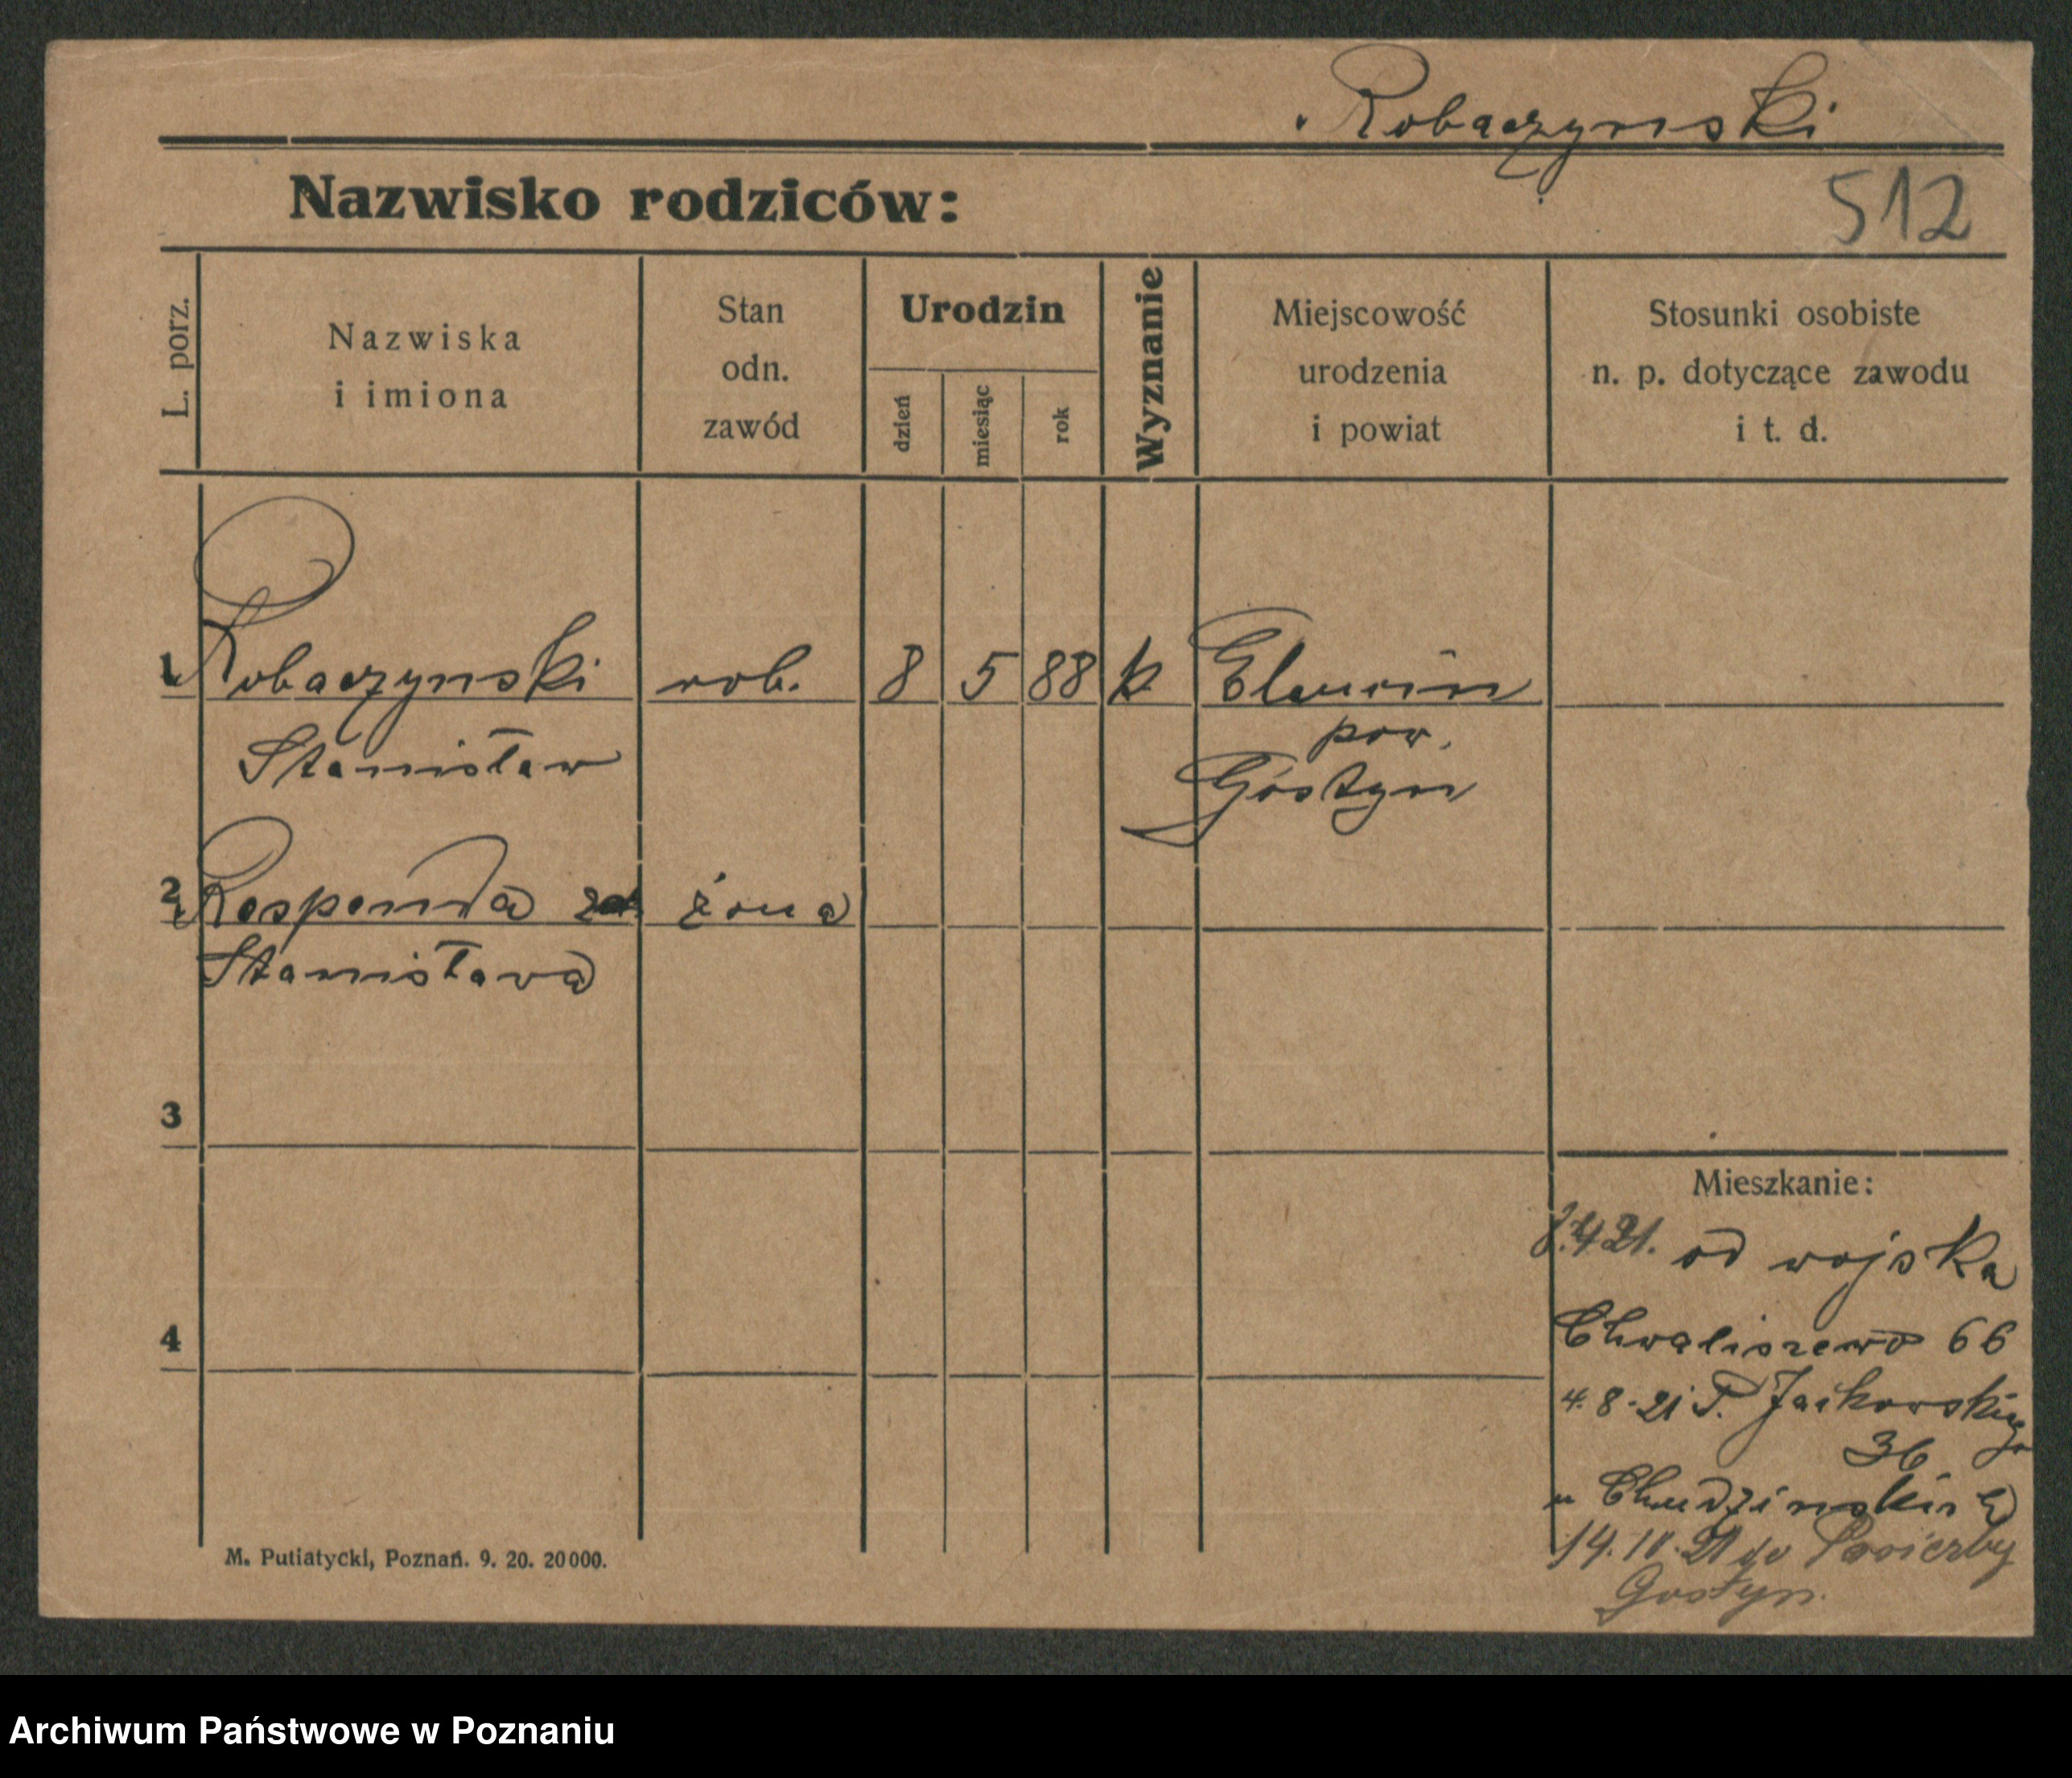 Robaczynski
Nazwisko rodziców:
512
L. porz.
Nazwiska
i imiona
Stan
odn.
zawód
Urodzin
dzień
miesiąc
rok
Wyznanie
Miejscowość
urodzenia
i powiat
Stosunki osobiste
n. p. dotyczące zawodu
i t. d.
1 Robaczynski rob. 8 5 88 k.
Stanisław
pow.
Gostyn
2 Respenda żona
Stanisława
3
4
Mieszkanie:
4 21. od wojska
Chwaliszewo 66
4. 8. 21 P. Jackowskiego
36
u Chudzinskie
14. 10. 21 do
Gostyn.
M. Putiatycki, Poznań. 9. 20. 20000.
Archiwum Państwowe w Poznaniu